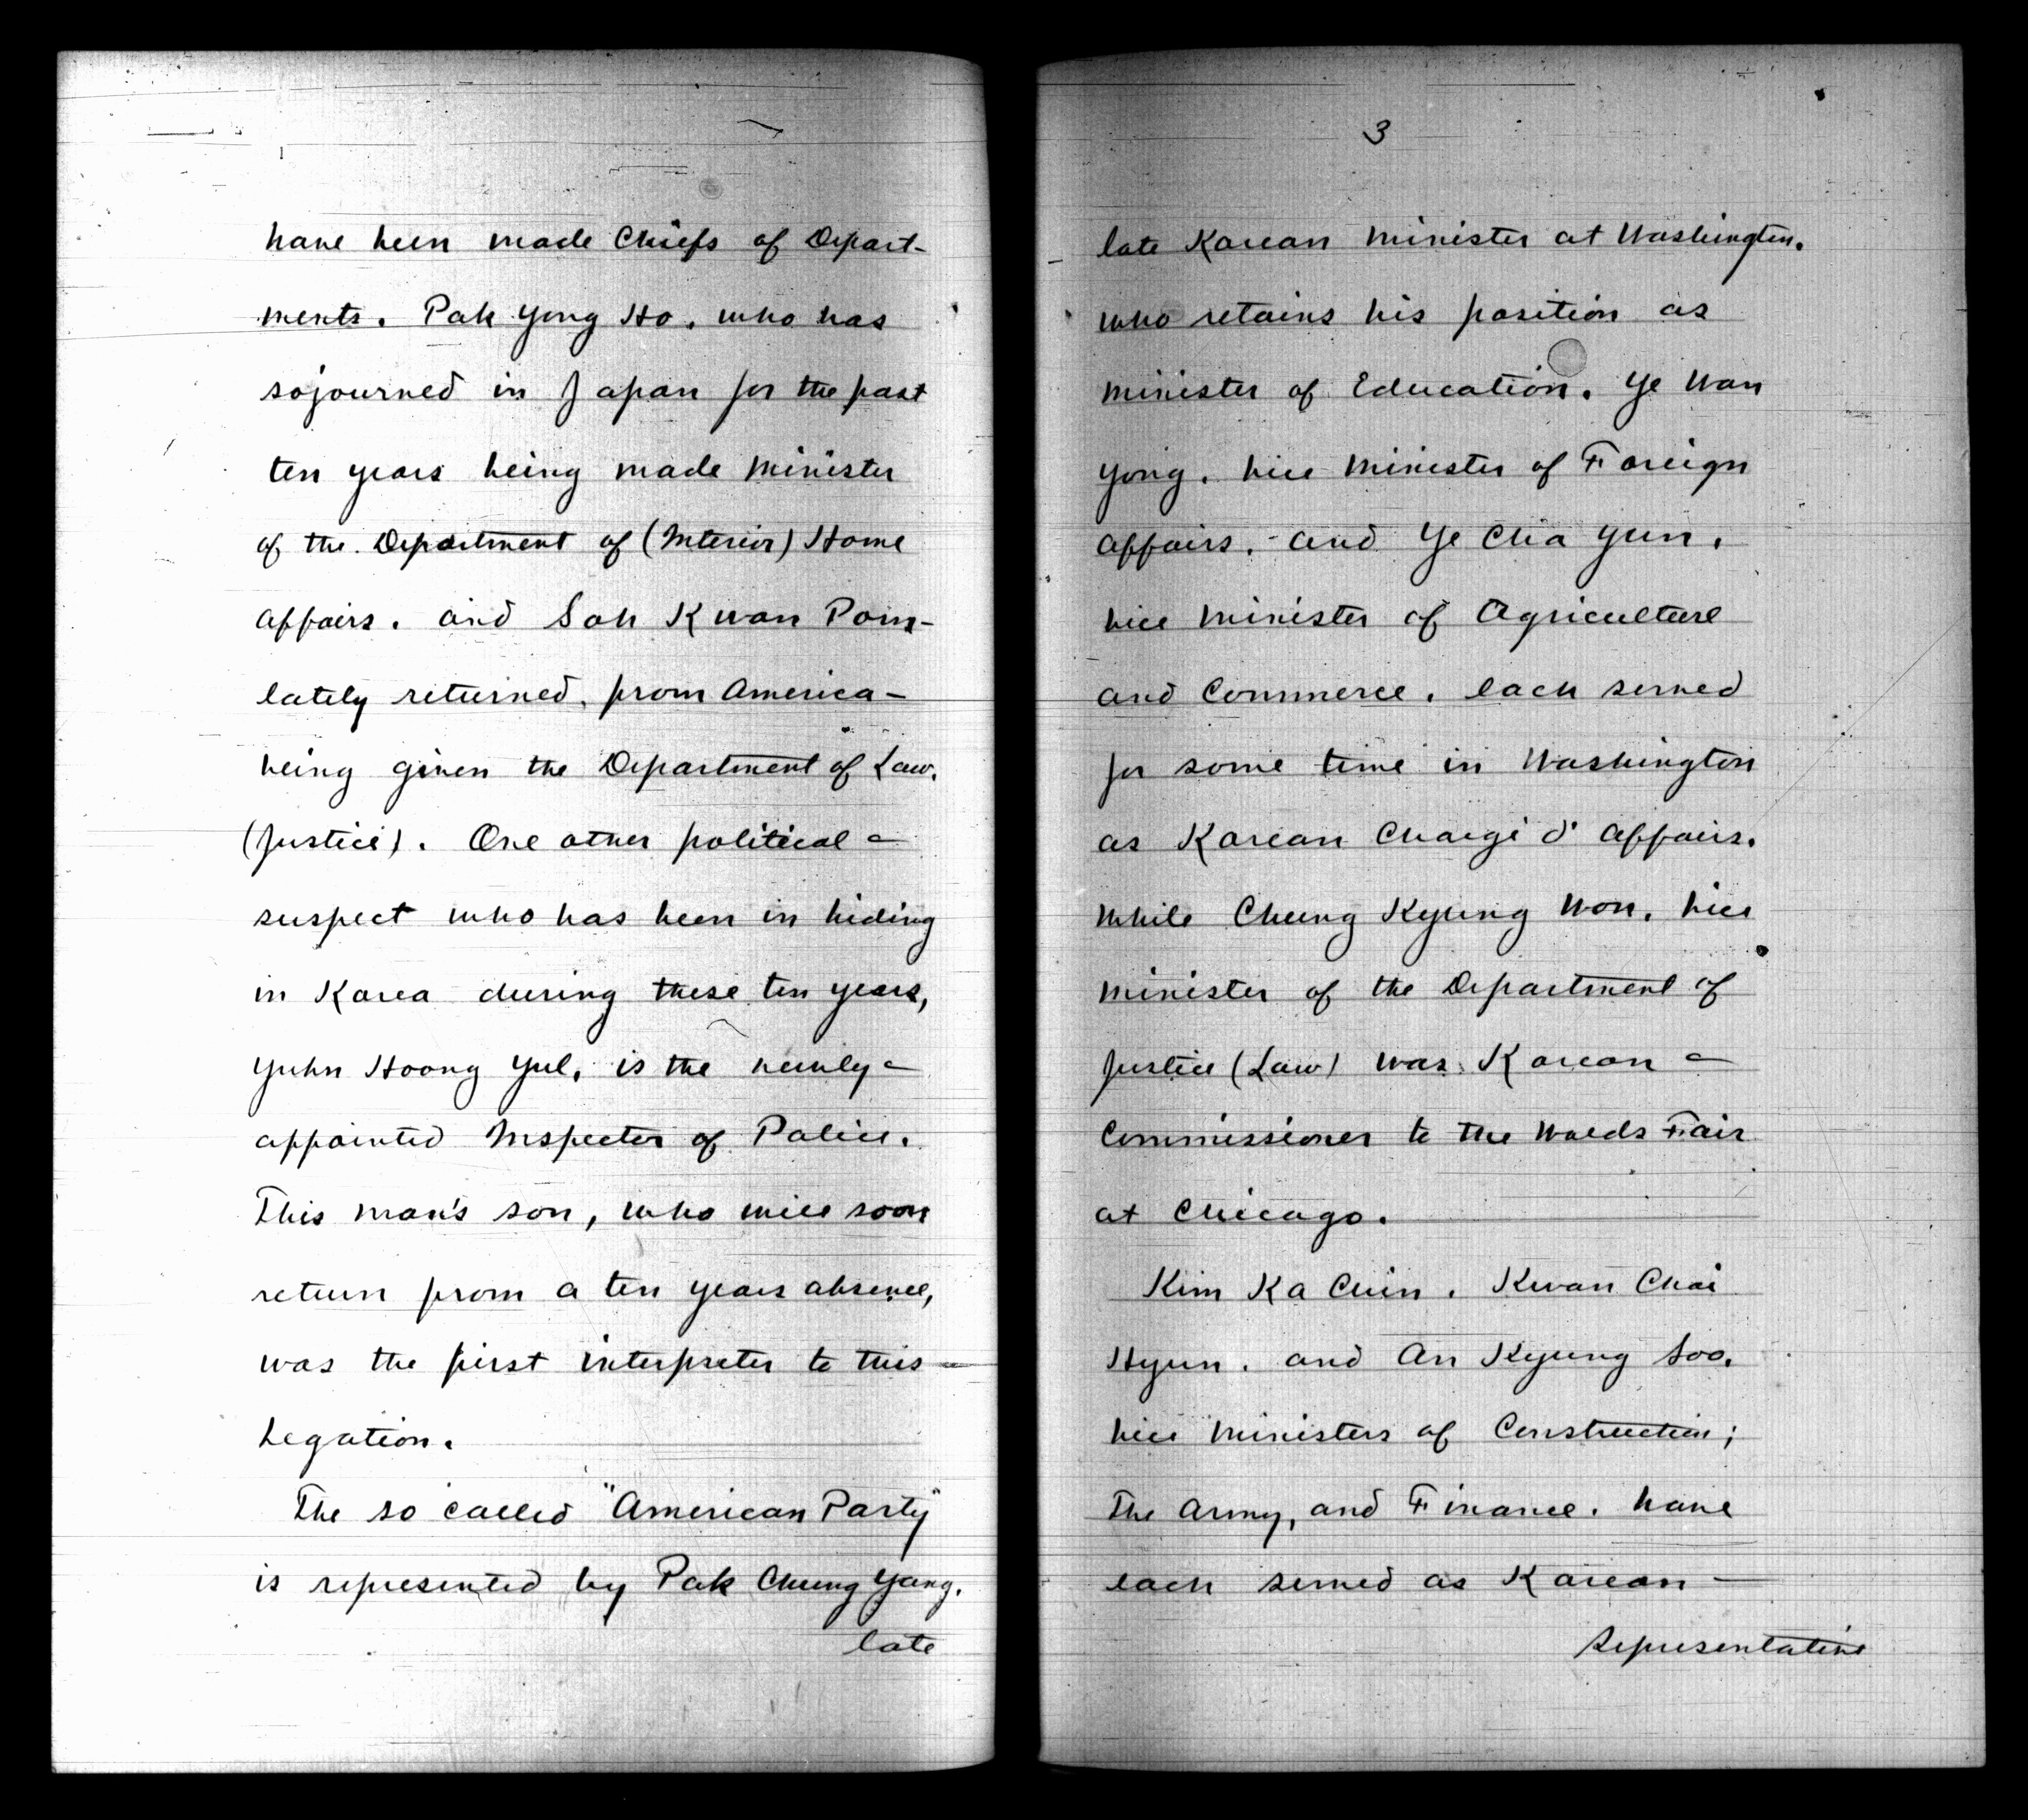 have been made Chiefs of Depart-
ments. Pak Yong Ho, who has
sojourned in Japan for the past
ten years being made Minister
of the Department of (Interior) Home
Affairs. and Soh Kwan Pom-
lately returned, from America-
being given the Department of Law.
(Justice). One other political -
suspect who has been in hiding
in Korea during these ten years,
Yuhn Hoong Yul, is the newly-
appointed Inspector of Police.
This man's son, who will soon
return from a ten years absence,
was the first interpreter to this -
Legation.
The so called "American Party"
is represented by Pak Chung Yang,
late
3
late Korean Minister at Washington,
who retains his position as
Minister of Education. Ye Wan
Yong, Vice Minister of Foreign
Affairs, - and Ye Cha Yun,
Vice Minister of Agriculture
and Commerce, each served
for some time in Washington
as Korean Chargé d' Affairs.
While Chung Kyung Won, Vice
Minister of the Department of
Justice (Law) was Korean -
Commissioner to the Worlds Fair
at Chicago.
Kim Ka Chin, Kwan Chai
Hyun, and An Kyung Soo,
Vice Ministers of Construction;
The Army, and Finance, have
each served as Korean -
Representative